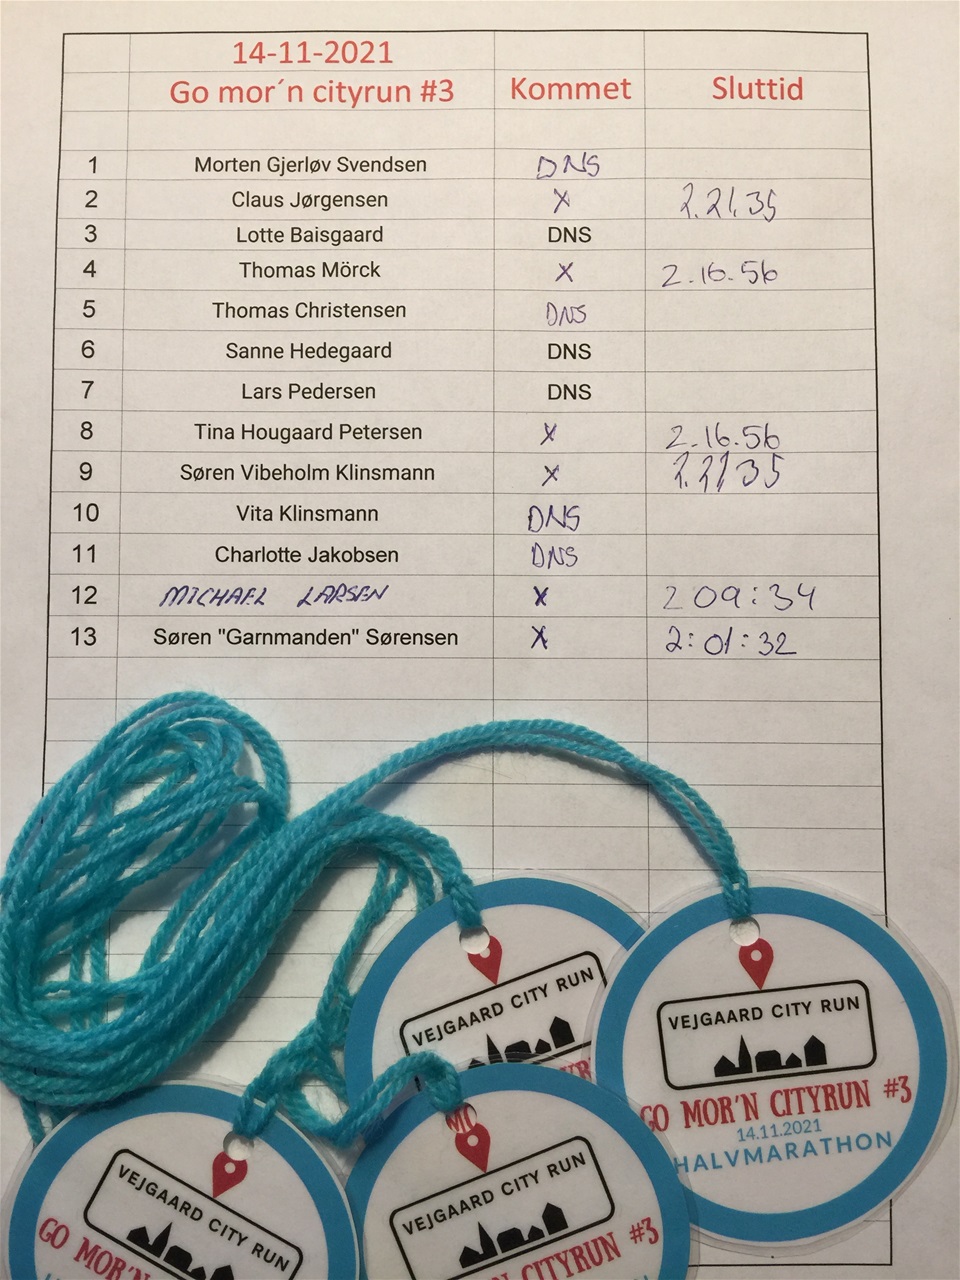 14-11-2021
Go mor´n cityrun #3 Kommet Sluttid
1 Morten Gjerløv Svendsen DNS
2 Claus Jørgensen X 2.21.35
3 Lotte Baisgaard DNS
4 Thomas Mörck X 2.16.56
5 Thomas Christensen DNS
6 Sanne Hedegaard DNS
7 Lars Pedersen DNS
8 Tina Hougaard Petersen X 2.16.56
9 Søren Vibeholm Klinsmann X 2.21.35
10 Vita Klinsmann DNS
11 Charlotte Jakobsen DNS
12 MICHAEL LARSEN X 2 09:34
13 Søren "Garnmanden" Sørensen X 2:01:32
VEJGAARD CITY RUN
VEJGAARD CITY RUN
GO MOR'N CITYRUN #3
14.11.2021
HALVMARATHON
VEJGAARD CITY RUN
GO MOR'N
VEJGAARD CITY RUN
CITYRUN #3